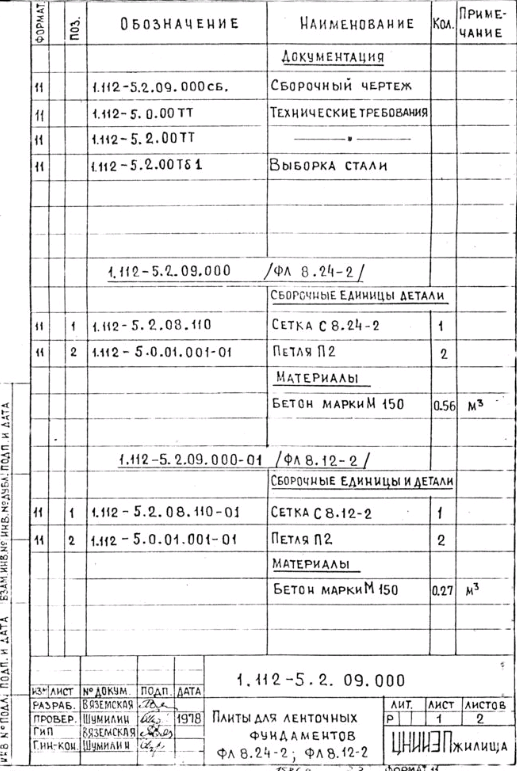 ФОРМАТ ПОЗ. ОБОЗНАЧЕНИЕ НАИМЕНОВАНИЕ КОЛ. ПРИМЕ-ЧАНИЕ
ДОКУМЕНТАЦИЯ
11 1.112-5.2.09.000СБ. СБОРОЧНЫЙ ЧЕРТЕЖ
11 1.112-5.0.00ТТ ТЕХНИЧЕСКИЕ ТРЕБОВАНИЯ
11 1.112-5.2.00ТТ —"—
11 1.112-5.2.00ТБ1 ВЫБОРКА СТАЛИ
1.112-5.2.09.000 /ФЛ 8.24-2/
СБОРОЧНЫЕ ЕДИНИЦЫ ДЕТАЛИ
11 1 1.112-5.2.08.110 СЕТКА С 8.24-2 1
11 2 1.112-5.0.01.001-01 ПЕТЛЯ П2 2
МАТЕРИАЛЫ
БЕТОН МАРКИ М 150 0.56 М³
1.112-5.2.09.000-01 /ФЛ 8.12-2/
СБОРОЧНЫЕ ЕДИНИЦЫ И ДЕТАЛИ
11 1 1.112-5.2.08.110-01 СЕТКА С 8.12-2 1
11 2 1.112-5.0.01.001-01 ПЕТЛЯ П2 2
МАТЕРИАЛЫ
БЕТОН МАРКИ М 150 0.27 М³
ИНВ № ПОДЛ. ПОДП. И ДАТА ВЗАМ.ИНВ.№ ИНВ. № ДУБЛ. ПОДП. И ДАТА
1.112-5.2.09.000
ИЗМ ЛИСТ № ДОКУМ. ПОДП. ДАТА
РАЗРАБ. ВЯЗЕМСКАЯ
ПРОВЕР. ШУМИЛИН 1978
ГИП ВЯЗЕМСКАЯ
ГИН-КОН. ШУМИЛИН
ПЛИТЫ ДЛЯ ЛЕНТОЧНЫХ
ФУНДАМЕНТОВ
ФЛ 8.24-2; ФЛ 8.12-2
ЛИТ. ЛИСТ ЛИСТОВ
Р 1 2
ЦНИИЭП ЖИЛИЩА
ФОРМАТ 11